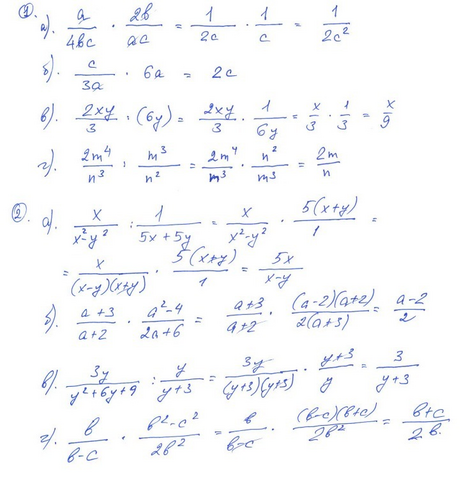 ① а). a/4bc · 2b/ac = 1/2c · 1/c = 1/2c²
б). c/3a · 6a = 2c
в). 2xy/3 : (6y) = 2xy/3 · 1/6y = x/3 · 1/3 = x/9
г). 2m⁴/n³ : m³/n² = 2m⁴/n³ · n²/m³ = 2m/n
② а). x/x²-y² : 1/5x+5y = x/x²-y² · 5(x+y)/1 =
= x/(x-y)(x+y) · 5(x+y)/1 = 5x/x-y
б). a+3/a+2 · a²-4/2a+6 = a+3/a+2 · (a-2)(a+2)/2(a+3) = a-2/2
в). 3y/y²+6y+9 : y/y+3 = 3y/(y+3)(y+3) · y+3/y = 3/y+3
г). b/b-c · b²-c²/2b² = b/b-c · (b-c)(b+c)/2b² = b+c/2b.